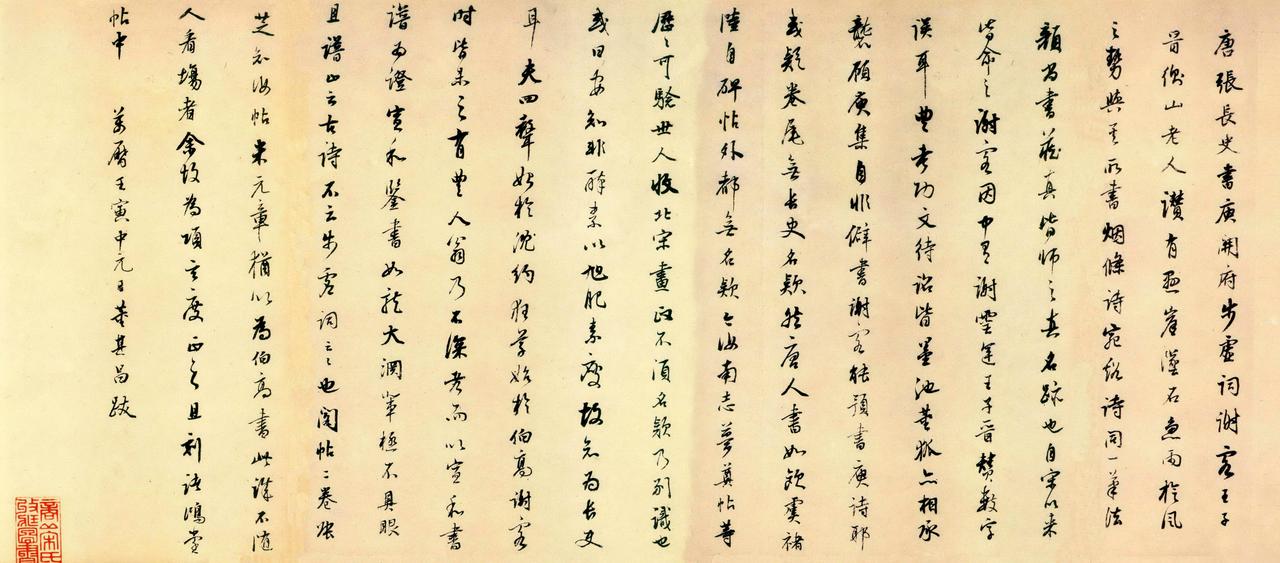 唐張長史書庾開府步虛詞謝客王子
晉衡山老人讚有懸崖墜石急雨旋風
之勢與其所書烟條詩宛谿詩同一筆法
顏尚書藏真皆師之真名跡也自宋以來
皆命之謝客因中有謝靈運王子晉贊數字
誤耳豐考功文待詔皆墨池董狐亦相承
襲顧庾集自非僻書謝客能預書庾詩耶
或疑卷尾無長史名款然唐人書如歐虞褚
陸自碑帖外都無名款今汝南志夢奠帖等
歷〻可驗世人收北宋畫政不須名款乃別識也
或曰安知非醉素以旭肥素瘦故知為長史
耳夫四聲始於沈約狂草始於伯高謝客
時皆未之有豐人翁乃不深考而以宣和書
譜為證宣和鑒書如龍大淵輩極不具眼
且譜止云古詩不云步虛詞云〻也閣帖二卷張
芝知汝帖米元章猶以為伯高書此誠不隨
人看場者余故為項玄度正之且刻諸鴻堂
帖中 萬曆壬寅中元日董其昌跋